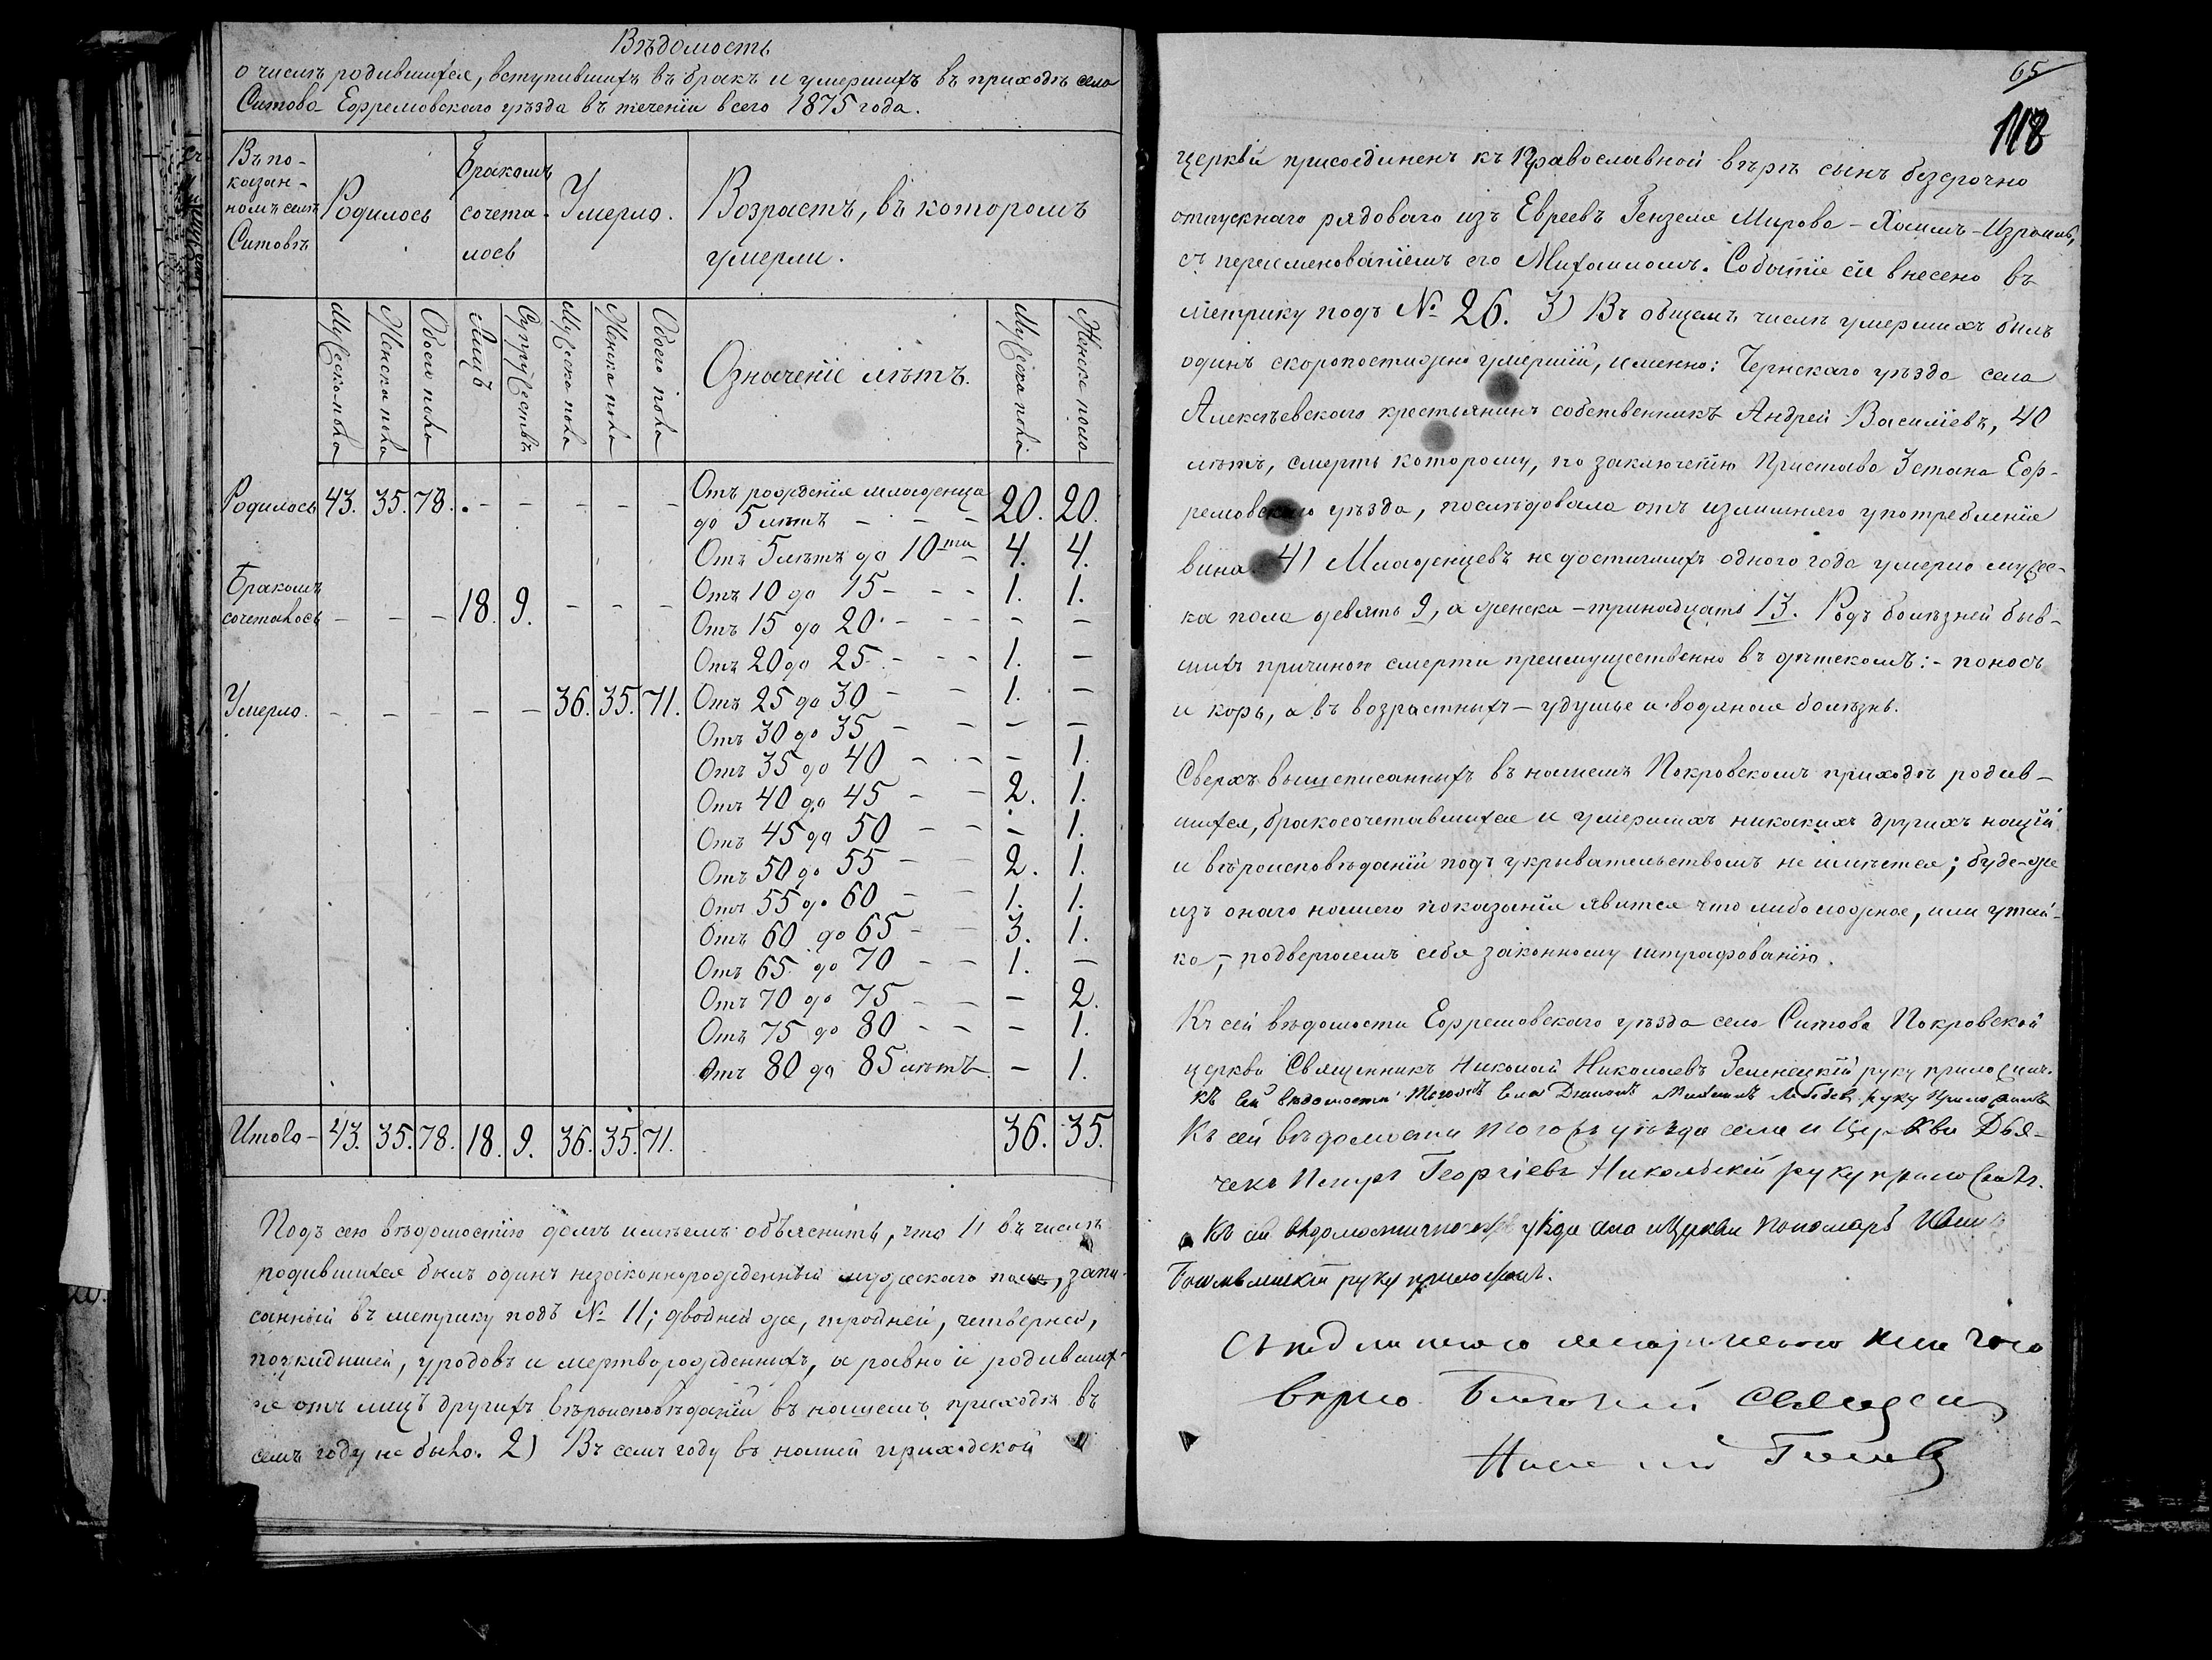 Вѣдомость
о числѣ родившихся, вступившихъ въ бракъ и умершихъ въ приходѣ села
Ситова Ефремовскаго уѣзда въ теченіи всего 1875 года.
Въ по-
казан-
номъ селѣ
Ситовѣ
Родилось
Бракомъ
сочета-
лось
Умерло.
Возрастъ, въ которомъ
умерли.
Мужеска пола
Женска пола
Обоего пола
Лицъ
Супружествъ
Мужеска пола
Женска пола
Обоего пола
Означеніе лѣтъ.
Мужеска пола
Женска пола
Родилось 43. 35. 78. - - - - - Отъ рожденія младенца
до 5 лѣтъ - - - 20. 20.
Отъ 5 лѣтъ до 10ти - 4. 4.
Бракомъ Отъ 10 до 15 - - - 1. 1.
сочеталось - - - 18. 9. - - - Отъ 15 до 20. - - - - -
Отъ 20 до 25 - - - 1. -
Умерло. - - - - - 36. 35. 71. Отъ 25 до 30 - - 1. -
Отъ 30 до 35 - - - -
Отъ 35 до 40 - - - 1.
Отъ 40 до 45 - - 2. 1.
Отъ 45 до 50 - - - 1.
Отъ 50 до 55 - - 2. 1.
Отъ 55 до 60 - - 1. 1.
Отъ 60 до 65 - - 3. 1.
Отъ 65 до 70 - - 1. -
Отъ 70 до 75 - - - 2.
Отъ 75 до 80 - - - 1.
Отъ 80 до 85 лѣтъ - 1.
Итого - 43. 35. 78. 18. 9. 36. 35. 71. 36. 35.
Подъ сею вѣдомостію долгъ имѣемъ объяснить, что 1) въ числѣ
родившихся былъ одинъ незаконнорожденный мужескаго пола, запи-
санный въ метрику подъ № 11; двойней же, тройней, четверней,
подкидышей, уродовъ и мертворожденныхъ, а равно и родивших-
ся отъ лицъ другихъ вѣроисповѣданій въ нашемъ приходѣ въ
семъ году не было. 2) Въ семъ году въ нашей приходской
65
118
церкви присоединенъ къ Православной вѣрѣ сынъ безсрочно
отпускнаго рядоваго изъ Евреевъ Гензеля Мирова - Хаимъ-Израиль,
съ переименованіемъ его Михаиломъ. Событіе сіе внесено въ
метрику подъ № 26. 3) Въ общемъ числѣ умершихъ былъ
одинъ скоропостижно умершій, именно: Чернскаго уѣзда села
Алексѣевскаго крестьянинъ собственникъ Андрей Василіевъ, 40
лѣтъ, смерть котораму, по заключенію Пристава 3 стана Еф-
ремовскаго уѣзда, послѣдовала отъ излишняго употребленія
вина. 4) Младенцевъ не достигшихъ одного года умерло мужес-
ка пола девять 9, а женска - тринадцать 13. Родъ болѣзней быв-
шихъ причиною смерти преимущественно въ дѣтскомъ: - поносъ
и корь, а въ возрастныхъ - удушье и водяная болѣзнь.
Сверхъ вышеписанныхъ въ нашемъ Покровскомъ приходѣ родив-
шихся, бракосочетавшихся и умершихъ никакихъ другихъ націй
и вѣроисповѣданій подъ укрывательствомъ не имѣется; буде-же
изъ онаго нашего показанія явится что либо ложное, или утай-
ка, - подвергаемъ себя законному штрафованію.
Къ сей вѣдомости Ефремовскаго уѣзда села Ситова Покровской
церкви Священникъ Николай Николаевъ Зеленецкій руку приложилъ.
Къ сей вѣдомости тогожъ села Діаконъ Михаилъ Лебедевъ руку приложилъ
Къ сей вѣдомости тогожъ уѣзда села и Церкви Дья-
чекъ Петръ Георгіевъ Никольскій руку приложилъ.
Къ сей вѣдомости тогожъ уѣзда села и Церкви Пономарь
руку приложилъ.
Съ подлинною метрическою книгою
вѣрно. Благочинный Священникъ